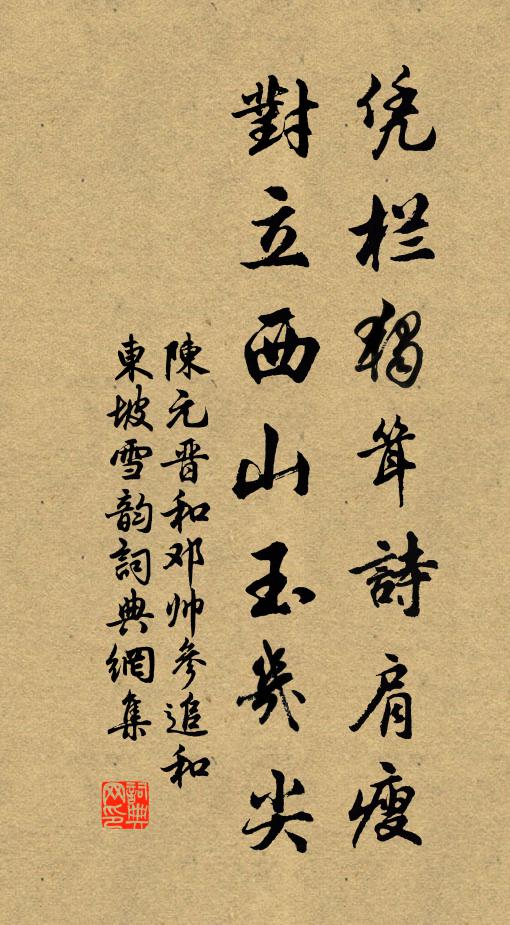 凭栏独耸詩肩瘦
對立西山玉幾尖
陳元晋和邓帅參追和
東坡雪韵詞典網集
詞典网印